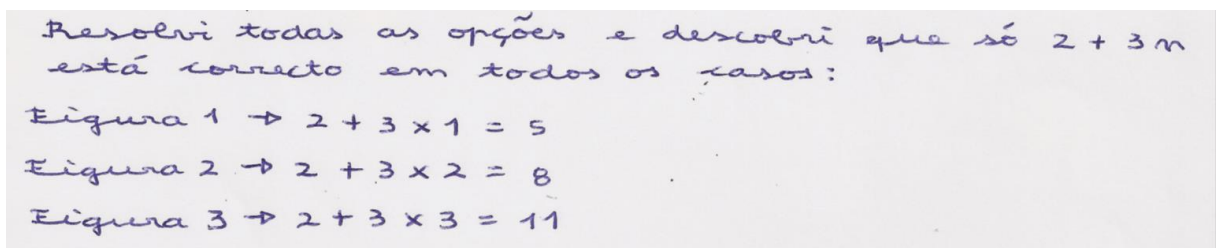 Resolvi todas as opções e descobri que só 2 + 3n
está correcto em todos os casos:
Figura 1 → 2 + 3 × 1 = 5
Figura 2 → 2 + 3 × 2 = 8
Figura 3 → 2 + 3 × 3 = 11